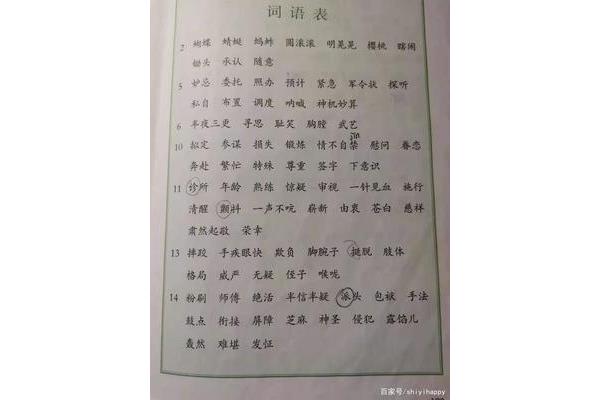 词语表
2 蝴蝶 蜻蜓 蚂蚱 圆滚滚 明晃晃 樱桃 瞎闹
锄头 承认 随意
5 妒忌 委托 照办 预计 紧急 军令状 探听
私自 布置 调度 呐喊 神机妙算
6 半夜三更 寻思 耻笑 胸膛 武艺
10 拟定 参谋 损失 锻炼 情不自禁 慰问 眷恋
奔赴 繁忙 特殊 尊重 签字 下意识
11 诊所 年龄 熟练 惊疑 审视 一针见血 施行
清醒 颤抖 一声不吭 崭新 由衷 苍白 慈祥
肃然起敬 荣幸
13 摔跤 手疾眼快 欺负 脚腕子 挺脱 肢体
格局 威严 无疑 侄子 喉咙
14 粉刷 师傅 绝活 半信半疑 派头 包袱 手法
鼓点 衔接 屏障 芝麻 神圣 侵犯 露馅儿
轰然 难堪 发怔
百家号/shiyihappy